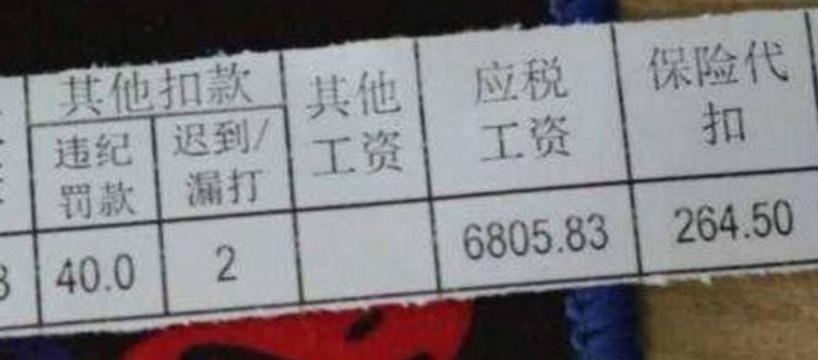 其他扣款
违纪
罚款
迟到/
漏打
其他
工资
应税
工资
保险代
扣
40.0
2
6805.83
264.50